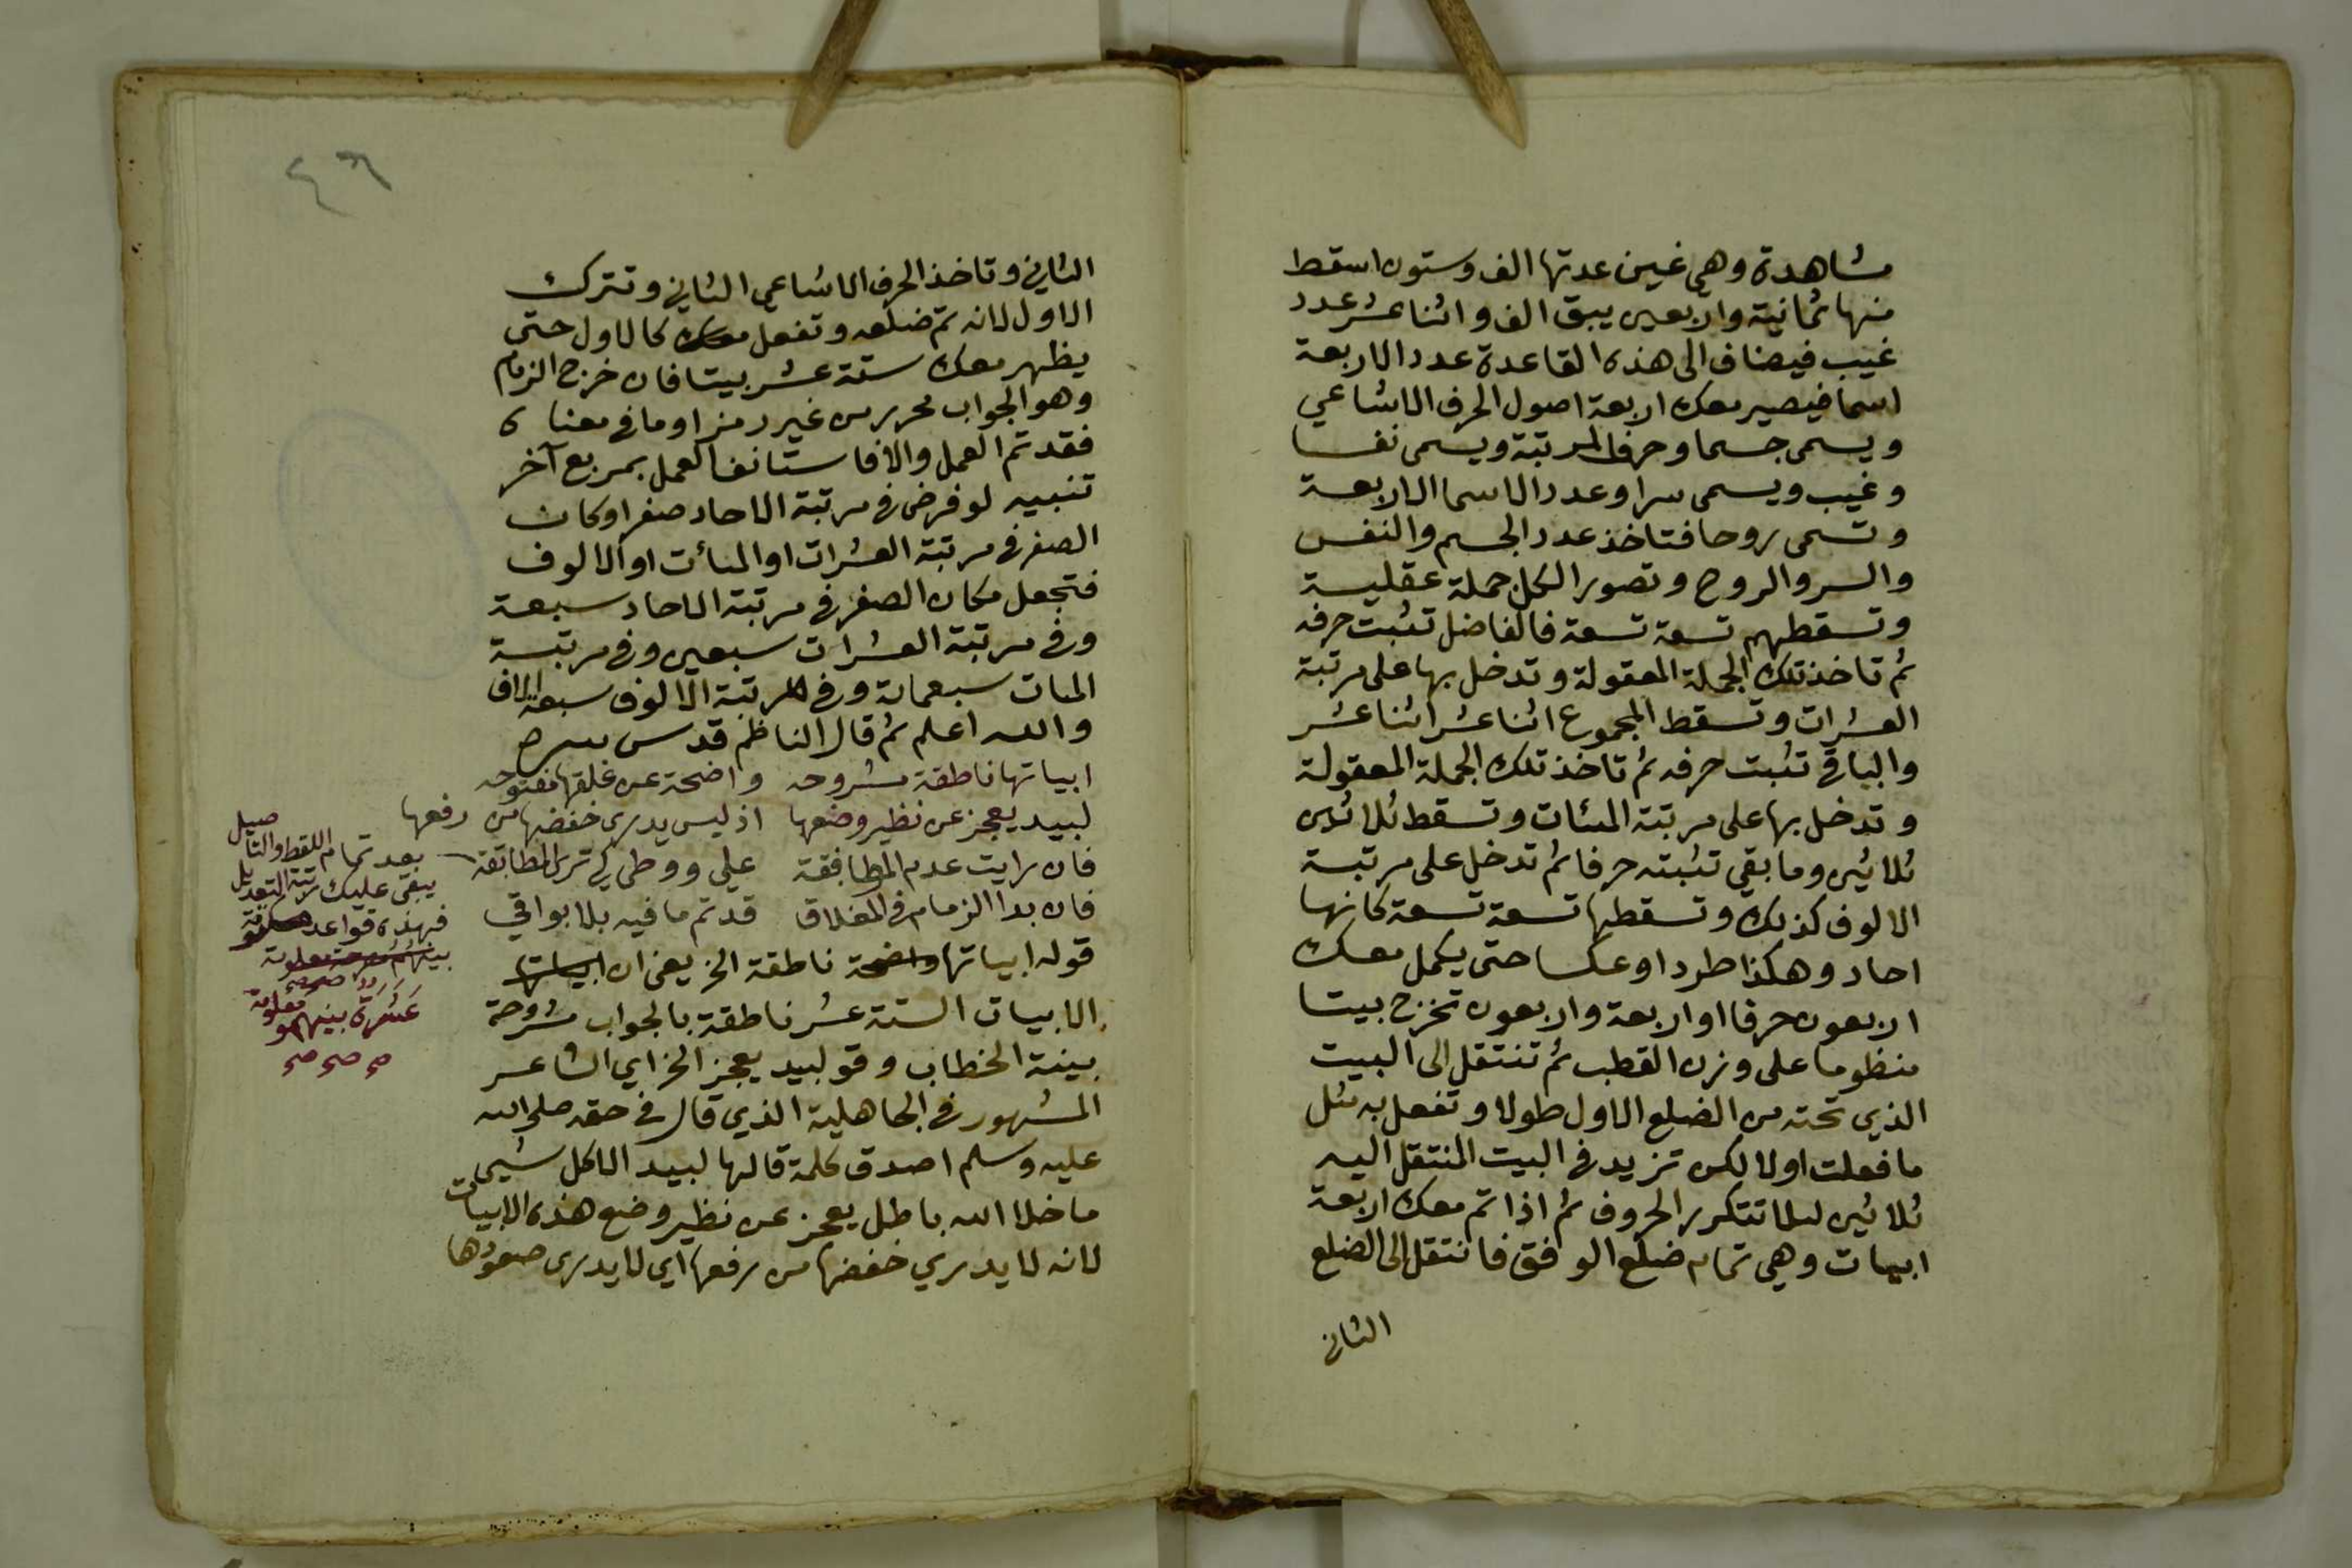 مشاهدة وهي غين عدتها الف وستون اسقط
منها ثمانية واربعين يبق الف واثنا عشر عدد
غيب فيضاف الى هذه القاعدة عدد الاربعة
اسما فيصير معك اربعة اصول الحرف الاشاعي
ويسمى جسما وحرف المرتبة ويسمى نفسا
وغيب ويسمى سرا وعدد الاسما الاربعة
وتسمى روحا فتاخذ عدد الجسم والنفس
والسر والروح وتصور الكل جملة عقلية
وتسقطهم تسعة تسعة فالفاضل تثبت حرفه
ثم تاخذ تلك الجملة المعقولة وتدخل بها على مرتبة
العشرات وتسقط المجموع اثنا عشر اثنا عشر
والباقي تثبت حرفه ثم تاخذ تلك الجملة المعقولة
وتدخل بها على مرتبة المئات وتسقط ثلاثين
ثلاثين وما بقي تثبته حرفا ثم تدخل على مرتبة
الالوف كذلك وتسقطها تسعة تسعة كانها
احاد وهكذا طردا وعكسا حتى يكمل معك
اربعون حرفا او اربعة واربعون تخرج بيتا
منظوما على وزن القطب ثم تنتقل الى البيت
الذي تحته من الضلع الاول طولا وتفعل به مثل
ما فعلت اولا لكن تزيد في البيت المنتقل اليه
ثلاثين لىلا تتكرر الحروف ثم اذا تم معك اربعة
ابيات وهي تمام ضلع الوفق فانتقل الى الضلع
الثاني
٤٦
الثاني وتاخذ الحرف الاشاعي الثاني وتترك
الاول لانه تم ضلعه وتفعل معك كالاول حتى
يظهر معك ستة عشر بيتا فان خرج الزمام
وهو الجواب محرر من غير رمز او ما في معناه
فقد تم العمل والا فاستانف العمل بمربع آخر
تنبيه لو فرض في مرتبة الاحاد صفر او كان
الصفر في مرتبة العشرات او المأت او الالوف
فتجعل مكان الصفر في مرتبة الاحاد سبعة
وفي مرتبة العشرات سبعين وفي مرتبة
المات سبعماية وفي المرتبة الالوف سبعة الاف
والله اعلم ثم قال الناظم قدس سره
ابياتها ناطقة مشروحه واضحة عن غلقها مفتوحه
لبيد يعجز عن نظير وضعها اذ ليس يدرى خفضها من رفعها
فان رايت عدم المطابقة علي ووطي كي ترى المطابقة
فان بدا الزمام في المغلاق قد تم ما فيه بلا بواقي
قوله ابياتها واضحة ناطقة الخ يعني ان ابياتها
الابيات الستة عشر ناطقة بالجواب مشروحة
بينة الخطاب وقو لبيد يعجز الخ اي الشاعر
المشهور في الجاهلية الذي قال في حقه صلى الله
عليه وسلم اصدق كلمة قالها لبيد الا كل شيى
ما خلا الله باطل يعجز عن نظير وضع هذه الابيات
لانه لا يدري خفضها من رفعها اي لا يدرى صعودها
بعد تمام اللقط والتاصيل
يبقى عليك رتبة التعديل
فهذه قواعد
بينهم معلومة
عَشَرَة بينهمو معلومة
صح صح صح